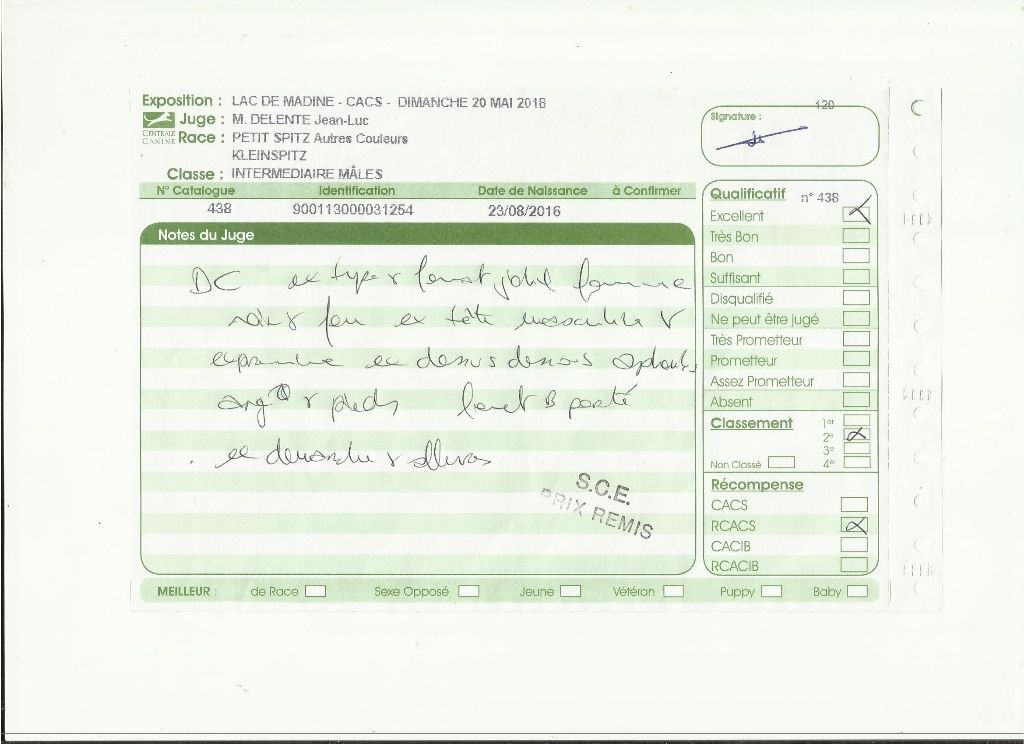 120
Exposition : LAC DE MADINE - CACS - DIMANCHE 20 MAI 2018
Juge : M. DELENTE Jean-Luc
CENTRALE CANINE
Race : PETIT SPITZ Autres Couleurs
KLEINSPITZ
Classe : INTERMEDIAIRE MÂLES
Signature :
N° Catalogue Identification Date de Naissance à Confirmer
438 900113000031254 23/08/2016
Notes du Juge
DC ex type & format jolie
feu ex tête &
ex dessus dessous
ang & pieds fouet B porté
ex démarche & allures
S.C.E.
PRIX REMIS
Qualificatif n° 438
Excellent
Très Bon
Bon
Suffisant
Disqualifié
Ne peut être jugé
Très Prometteur
Prometteur
Assez Prometteur
Absent
Classement 1er
2e
3e
Non Classé 4e
Récompense
CACS
RCACS
CACIB
RCACIB
MEILLEUR : de Race Sexe Opposé Jeune Vétéran Puppy Baby